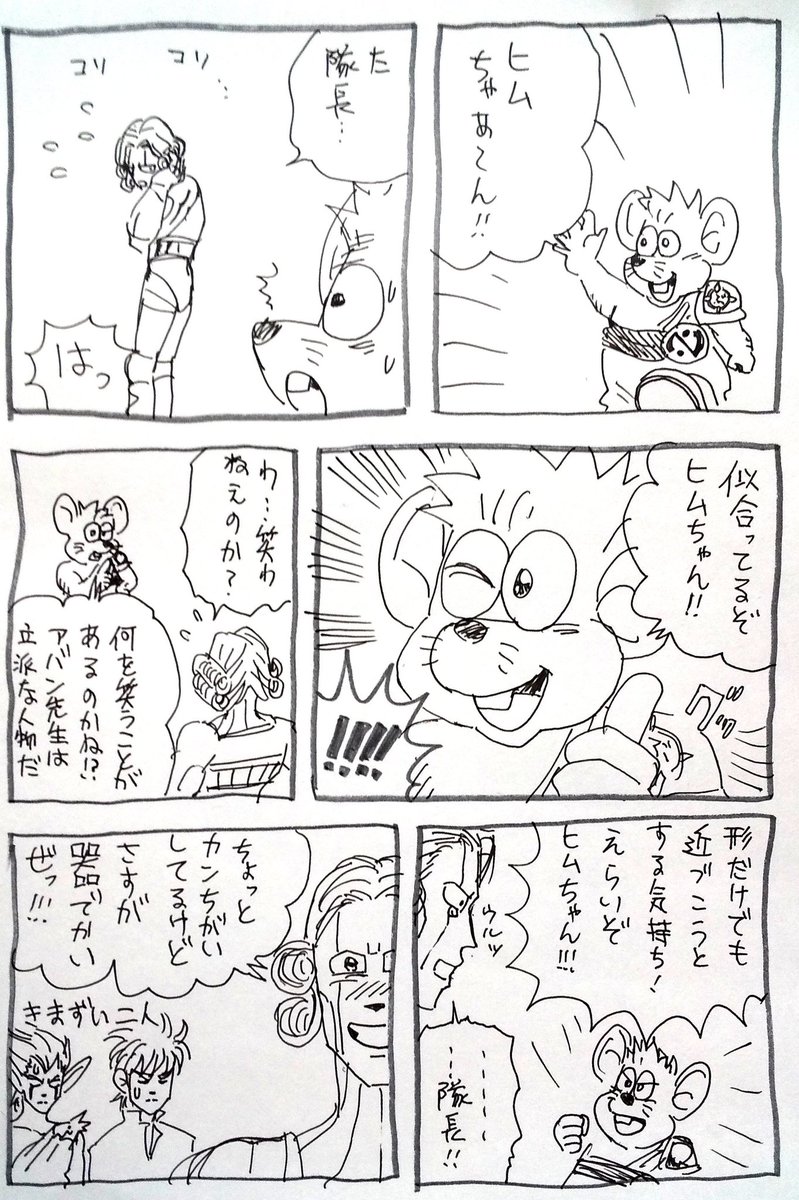 ヒム
ちゃあ〜ん!!
た
隊長…
コソ
コソ…
はっ
似合ってるぞ
ヒムちゃん!!
グッ
!!!!
わ…笑わ
ねえのか?
何を笑うことが
あるのかね!?
アバン先生は
立派な人物だ
形だけでも
近づこうと
する気持ち!
えらいぞ
ヒムちゃん!!!
ウルッ
……隊長!!
ちょっと
カンちがい
してるけど
さすが
器でかい
ぜッ!!!
きまずい二人